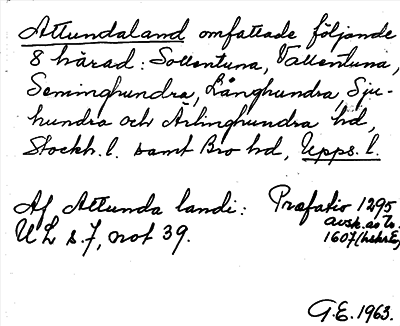 Attundaland omfattade följande
8 härad: Sollentuna, Vallentuna,
Seminghundra, Långhundra, Sju-
hundra och Ärlinghundra hd,
Stockh. l. samt Bro hd, Upps. l.
Af Attunda landi: Præfatio 1295
avsk. av To.
UL s. 7, not 39. 1607 (hskr E)
G.E. 1963.